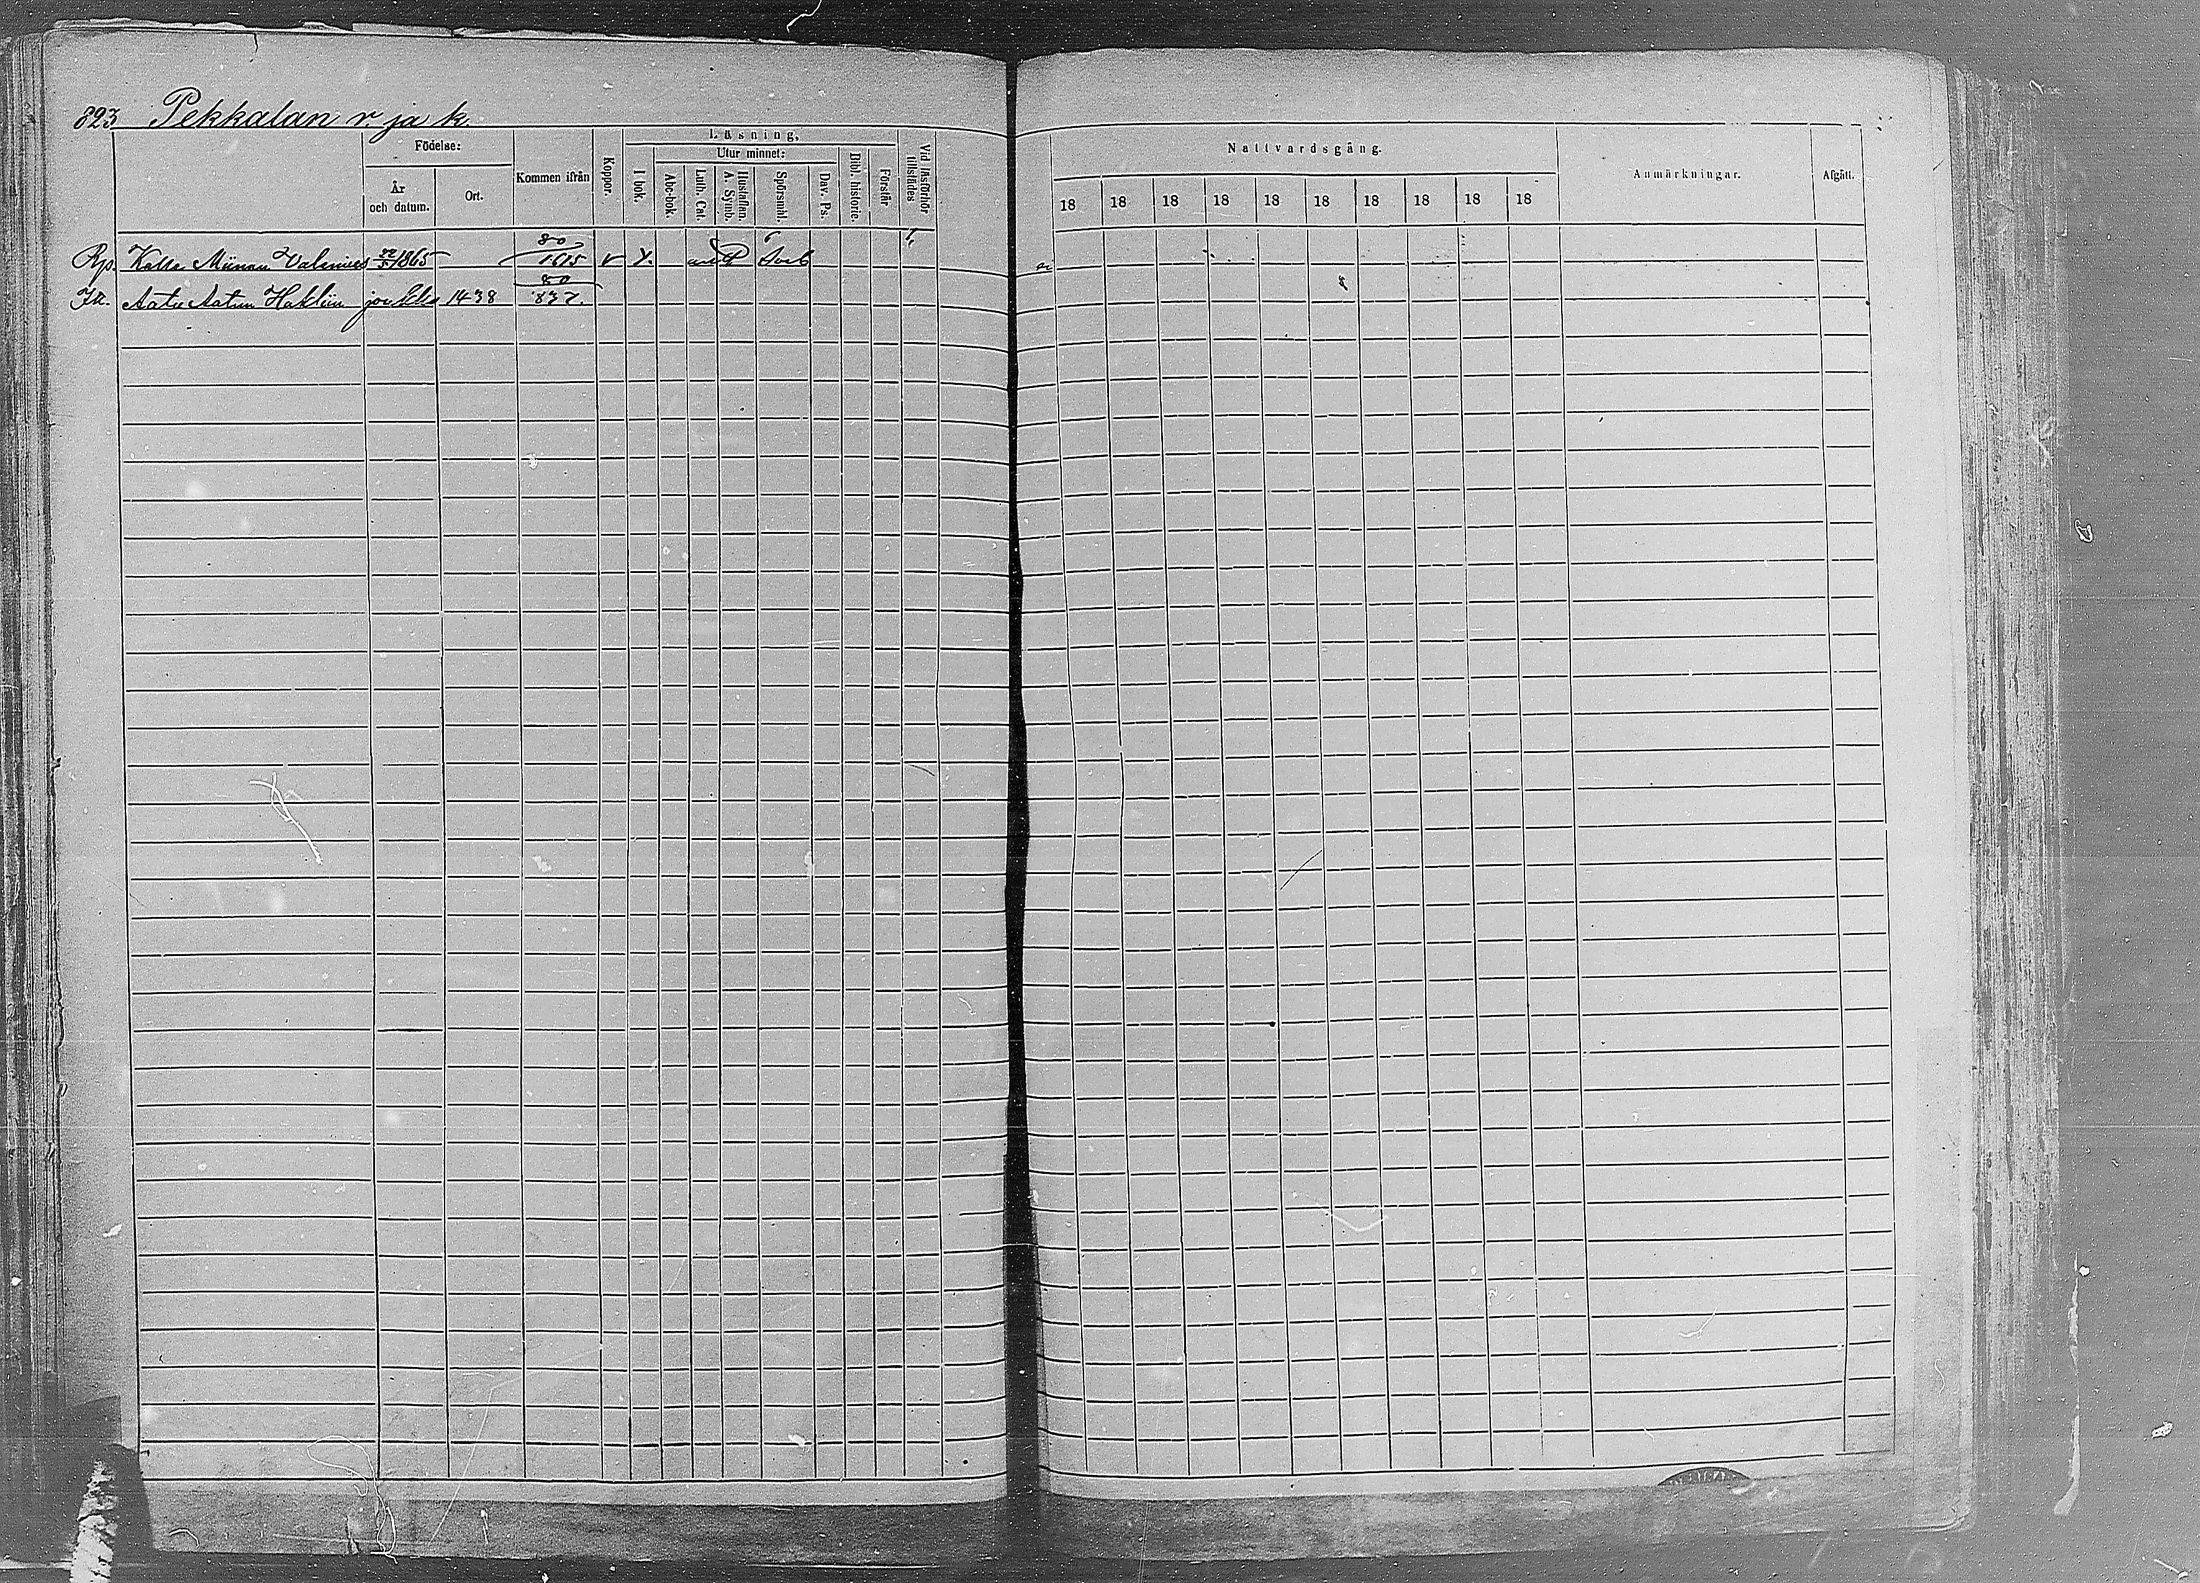 823 Pekkalan r ja k.
Födelse:
År och datum.
Ort.
Kommen ifrån
Koppor.
Läsning.
I bok.
Utur minnet:
Abc-bok.
Luth. Cat.
Hustaflan. A. Symb.
Spörsmål.
Dav. Ps.
Bibl. historie.
Förstår
Vid läsförhör tillstädes
Nattvardsgång.
18 18 18 18 18 18 18 18 18 18
Anmärkningar.
Afgått.
Rp. Kalle 1865 80 1615
Aatu Aatun Haklin 1438 80 837.